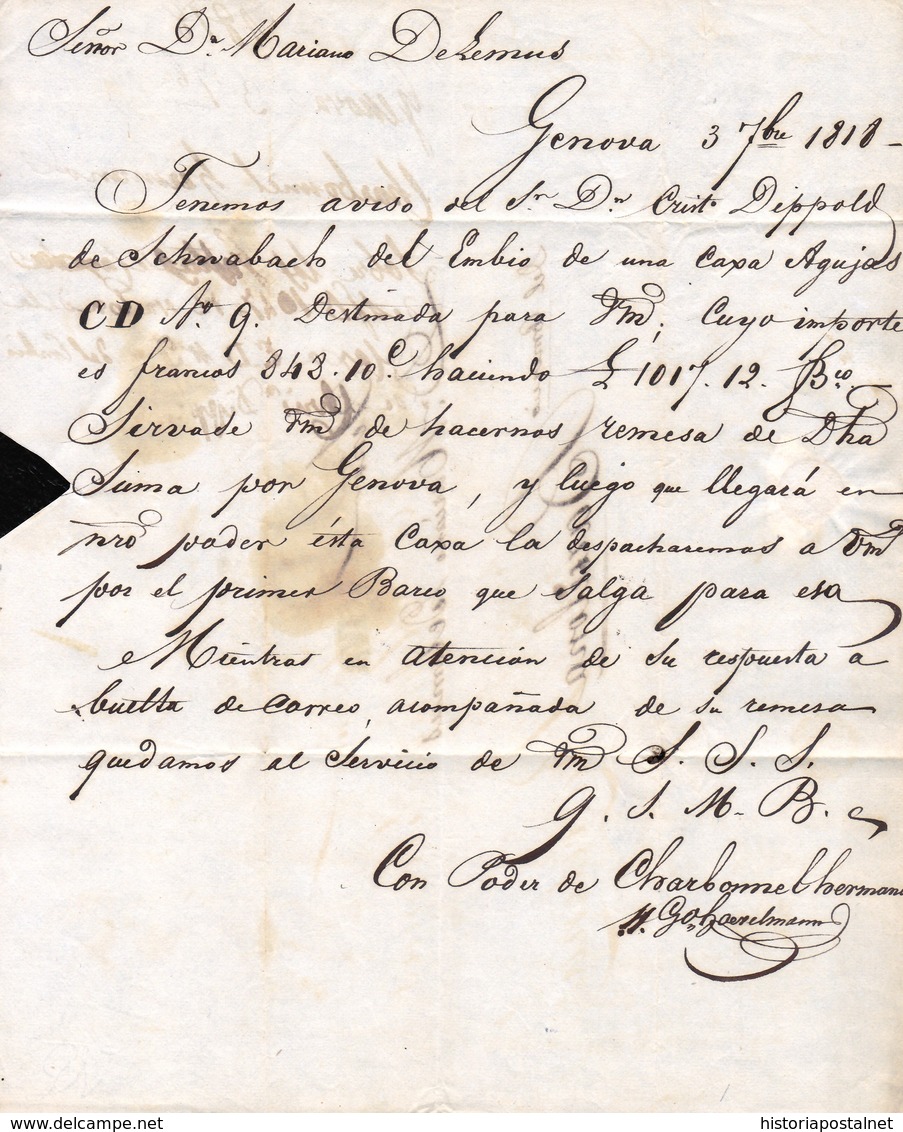 Señor Dn. Mariano DeLemus
Genova 3 7bre 1818 -
Tenemos aviso del Sr. Dn. Cristo. Dippold
de Schwabach del Embio de una Caxa Agujas
CD No. 9. Destinada para Vmd, Cuyo importe
es francos 848.10c. haciendo £ 1017.12. Bco.
Sirvase Vmd de hacernos remesa de Dha
Suma por Genova, y luego que llegará en
nro poder ésta Caxa la despacharemos a Vmd
por el primer Barco que salga para esa
Mientras en atención de su respuesta a
buelta de Correo, acompañada de su remesa
quedamos al Servicio de Vmd S. S. S.
q. S. M. B.
Con Poder de Charbonnel herman